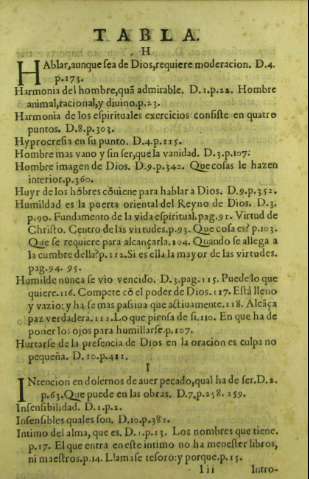 TABLA.
H
HAblar, aunque sea de Dios, requiere moderacion. D.4.
p.173.
Harmonia del hombre, quã admirable. D.1.p.22. Hombre
animal, racional, y diuino. p.23.
Harmonia de los espirituales exercicios consiste en quatro
puntos. D.8.p.303.
Hyprocresia en su punto. D.4.p.115.
Hombre mas vano y sin ser, que la vanidad. D.3.p.107:
Hombre imagen de Dios. D.9.p.342. Que cosas le hazen
interior. p.360.
Huyr de los hõbres cõuiene para hablar a Dios. D.9.p.352.
Humildad es la puerta oriental del Reyno de Dios. D.3.
p.90. Fundamento de la vida espiritual. pag.91. Virtud de
Christo. Centro de las virtudes. p.93. Que cosa es? p.103.
Que se requiere para alcançarla. 104. Quando se allega a
la cumbre della? p.112. Si es ella la mayor de las virtudes.
pag.94. 95.
Humilde nunca se vio vencido. D.3.pag.115. Puede lo que
quiere. 116. Compete cõ el poder de Dios. 117. Està lleno
y vazio; y ha se mas passiua que actiuamente. 118. Alcãça
paz verdadera. 112. Lo que piensa de si. 110. En que ha de
poner los ojos para humillarse. p.107.
Hurtarse de la presencia de Dios en la oracion es culpa no
pequeña. D.10.p.411.
I
INtencion en dolernos de auer pecado, qual ha de ser. D.2.
p.63. Que puede en las obras. D.7.p.258. 259.
Insensibilidad. D.1.p.2.
Insensibles quales son. D.10.p.381.
Intimo del alma, que es. D.1.p.13. Los nombres que tiene.
p.17. El que entra en este intimo no ha menester libros,
ni maestros. p.14. Llamase tesoro: y porque. p.15.
Iii Intro-